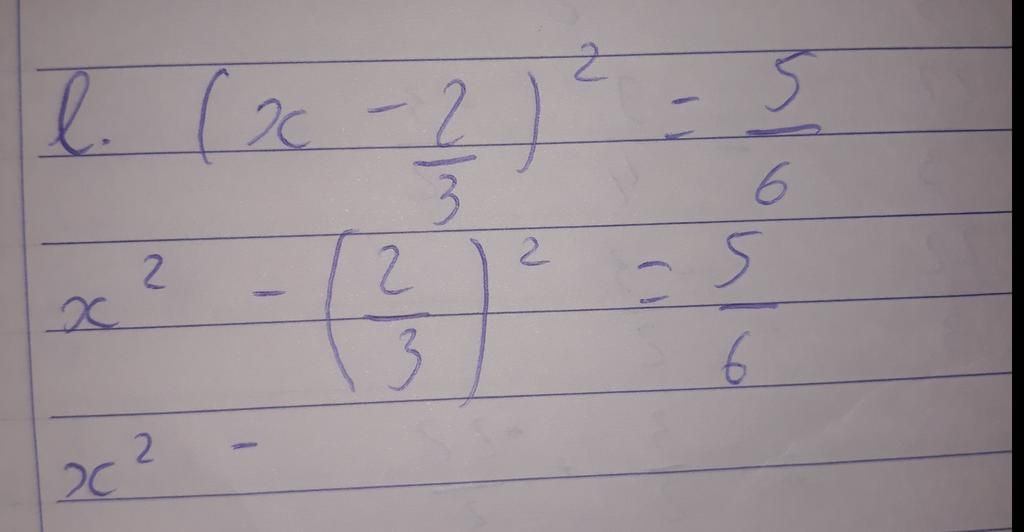 l. (x - 2/3)² = 5/6
x² - (2/3)² = 5/6
x² -